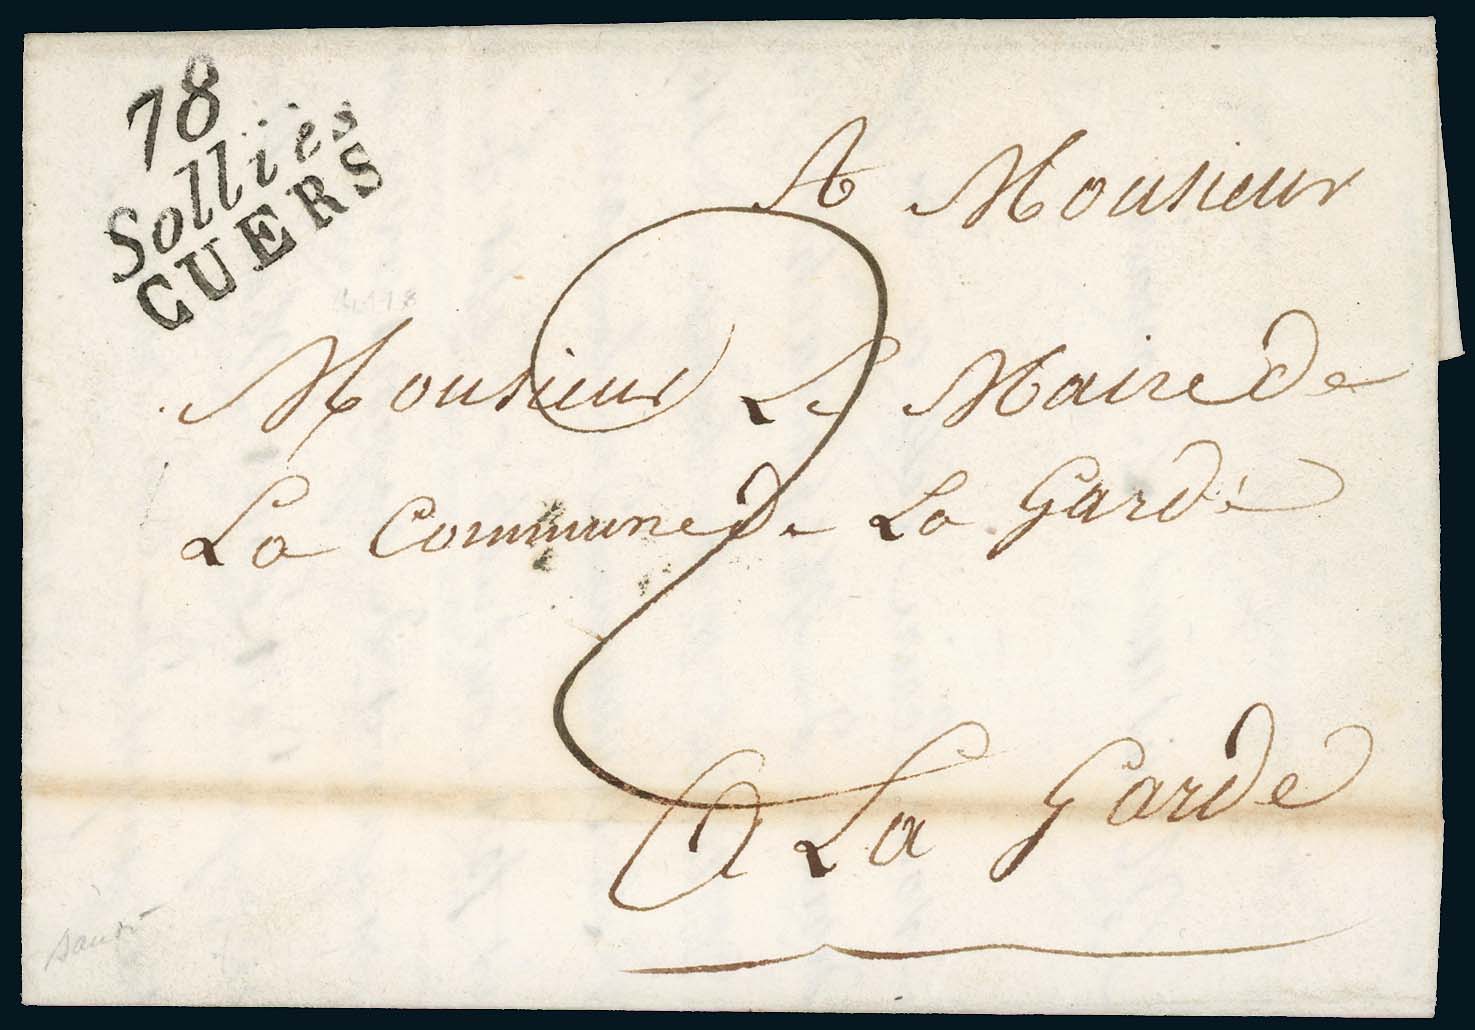 78
Solliès
CUERS
A Monsieur
Monsieur Le Maire de
La Commune de La Garde
2
a La Garde